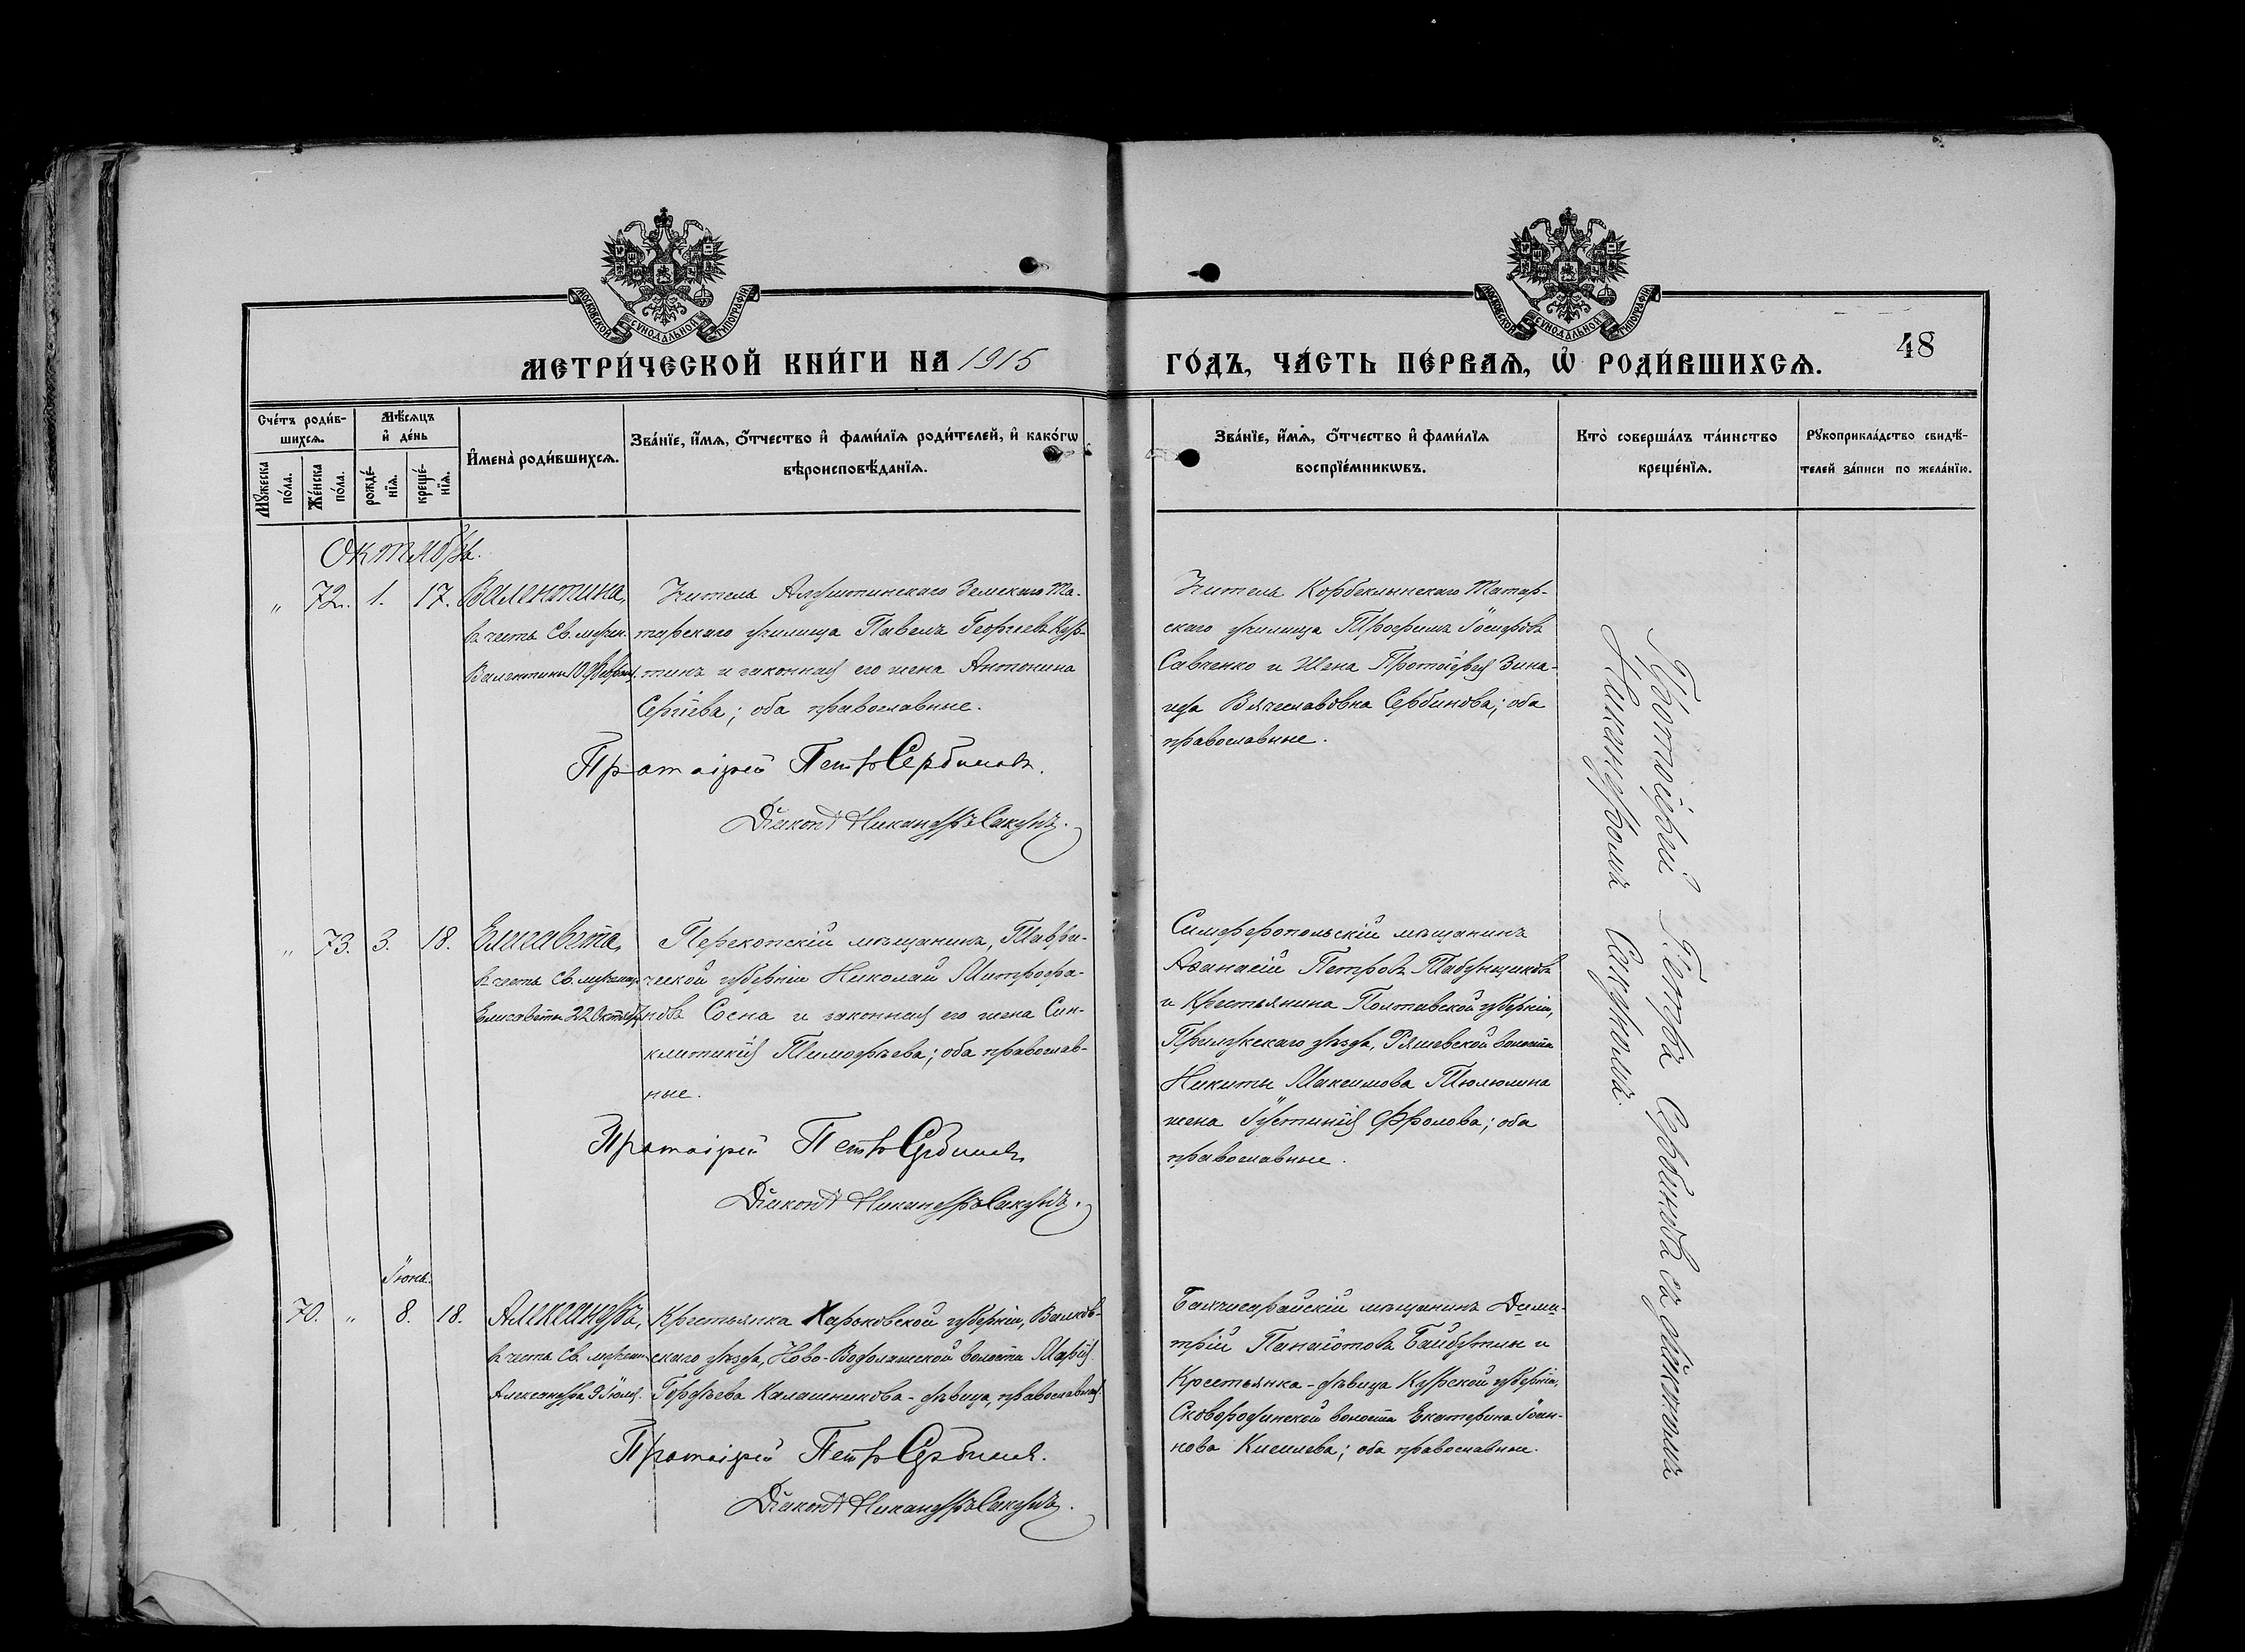 МОСКОВСКОЙ СѴНОДАЛЬНОЙ ТИПОГРАФІИ
МОСКОВСКОЙ СѴНОДАЛЬНОЙ ТИПОГРАФІИ
МЕТРИ́ЧЕСКОЙ КНИ́ГИ НА 1915
ГО́ДЪ, ЧА́СТЬ ПЕ́РВАѦ, Ѡ҆ РОДИ́ВШИХСѦ.
48
Сче́тъ роди́в-
шихсѧ.
Мѣ́сѧцъ
и҆ де́нь
Мꙋ́жеска
по́ла.
Же́нска
по́ла.
рожде́-
нїѧ.
креще́-
нїѧ.
И҆мена̀ роди́вшихсѧ.
Зва́нїе, и҆́мѧ, ѻ҆́тчество и҆ фами́лїѧ роди́телей, и҆ како́гѡ
вѣроисповѣ́данїѧ.
Зва́нїе, и҆́мѧ, ѻ҆́тчество и҆ фами́лїѧ
воспрїе́мникѡвъ.
Кто̀ соверша́лъ та́инство
креще́нїѧ.
Рꙋкоприкла́дство свидѣ́-
телей за́писи по жела́нїю.
Октябрь.
" 72. 1. 17. Валентина,
въ честь Св. мучен.
Валентины 10 Февраля.
Учитель Алуштинскаго Земскаго Та-
тарскаго училища Павелъ Георгіевъ
и законная его жена Антонина
Сергіева; оба православные.
Протоіерей Петръ Сербиновъ.
Діаконъ Никандръ Сакунъ.
Учитель Корбеклынскаго Татар-
скаго училища Трофимъ Іосифовъ
Савченко и Жена Протоіерея Зина-
ида Вячеславовна Сербинова; оба
православные.
" 73. 3. 18. Елисавета,
въ честь Св. мучениц.
Елисаветы 22 Октября
Перекопскій мѣщанинъ, Таври-
ческой губерніи Николай Митрофа-
новъ Сосна и законная его жена Син-
клитикія Тимофѣева; оба православ-
ные.
Протоіерей Петръ Сербиновъ
Діаконъ Никандръ Сакунъ.
Симферопольскій мѣщанинъ
Аѳанасій Петровъ Табунщиковъ
и Крестьянина Полтавской губерніи,
уѣзда, волости
Никиты Максимова Тюлюпина
жена Іустинія Фролова; оба
православные.
Іюнь.
70. " 8. 18. Александръ,
въ честь Св. мученик.
Александра 9 Іюля.
Крестьянка Харьковской губерніи, Валков-
скаго уѣзда, Ново-Водолажской волости Марія
Гордѣева Калашникова - дѣвица, православная
Протоіерей Петръ Сербиновъ.
Діаконъ Никандръ Сакунъ.
Бахчисарайскій мѣщанинъ Дими-
трій Панаіотовъ и
Крестьянка - дѣвица Курской губерніи,
Сковородинской волости Екатерина Іоан-
нова Киселева; оба православные.
Протоіерей Петръ Сербиновъ съ діакономъ
Никандромъ Сакуномъ.